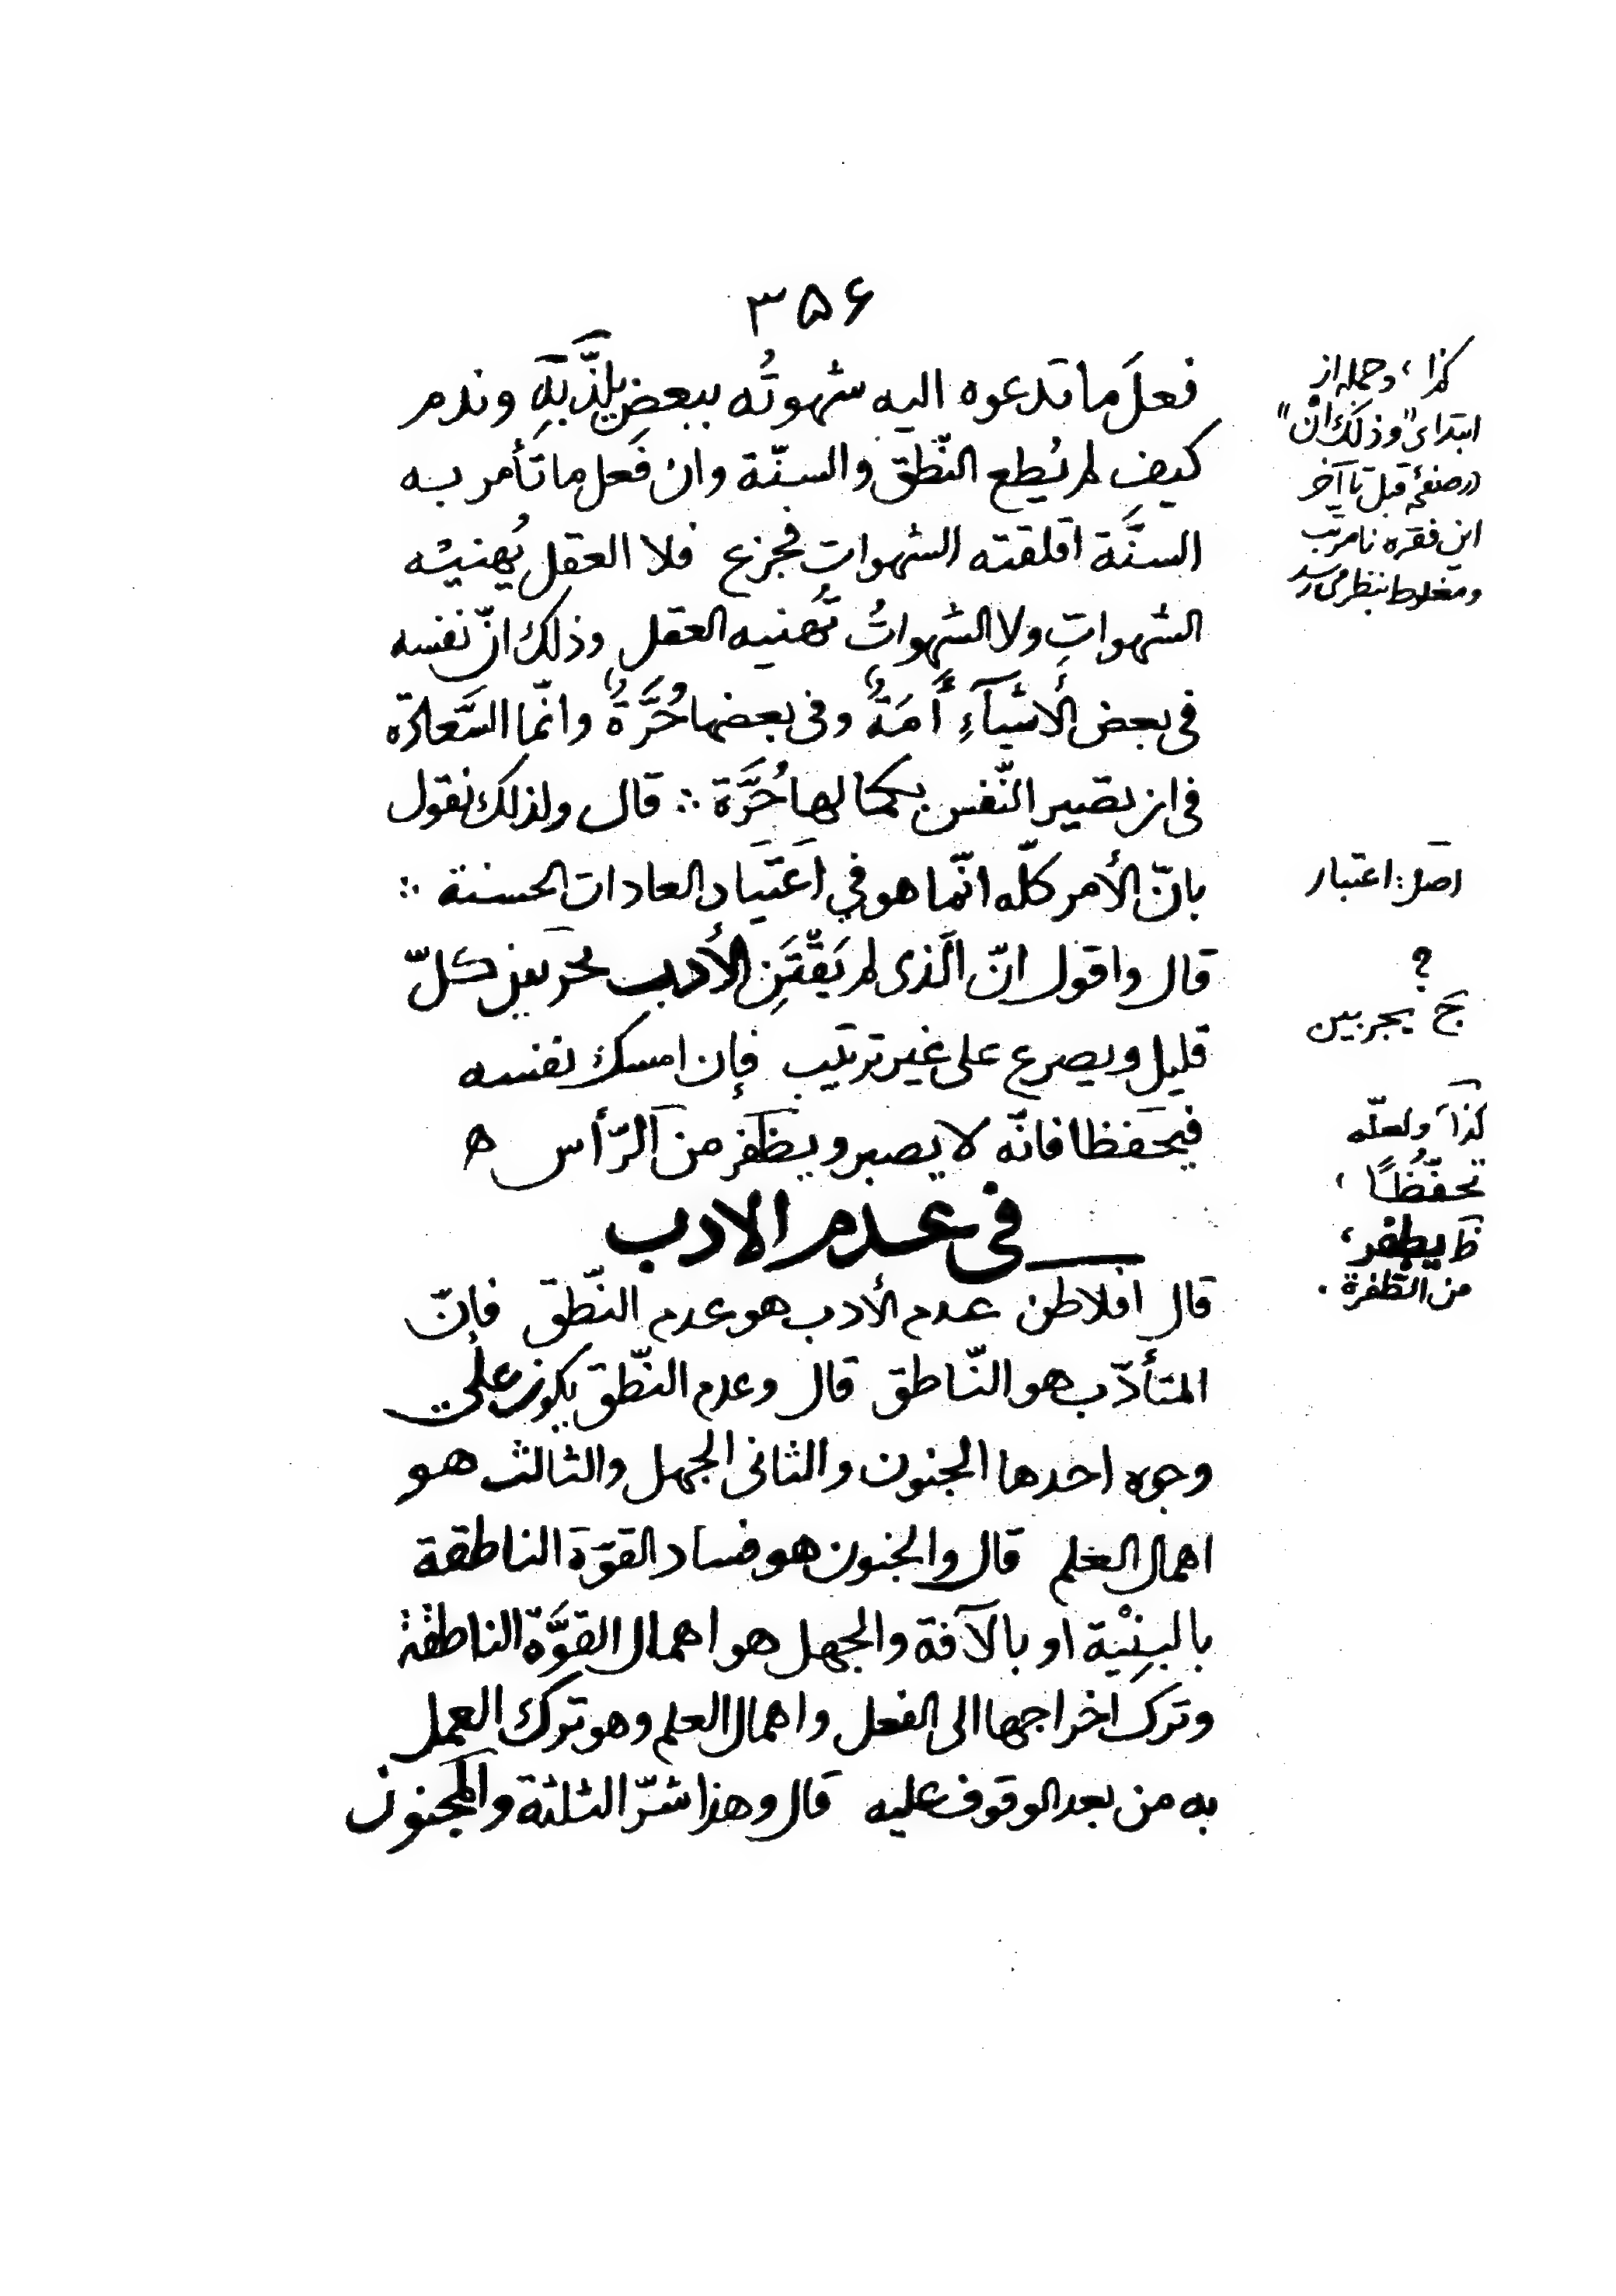 ۳۵۶
فعلَ ما تدعوه اليه شهوتُه ببعضِ يلذّ بَلَهِ وندم
كيف لم يُطع النّطق والسنّة وان فَعل ما تَأمر به
السنَّة اقلقته الشهوات فجزع فلا العقل يُهنيْه
الشهواتِ ولا الشهواتُ تُهنيه العقل وذلك انّ نفسه
فى بعض الأشيآءِ أَمَةٌ وفى بعضها حُرَّةٌ وانّما السَّعادة
فى ان تصير النّفس بكمالها حُرَّة ∴ قال ولذلك نقول
بانّ الأمر كلّه انّما هو فى اعتياد العادات الحسنة ∴
قال واقول انّ الّذى لم يَقْتَنِ الأدب
قليل ويصرع على غير ترتيب فإن امسك نفسه
فيحفظا فانّه لا يصبر ويظفر من الرّأس ه
فى عدم الادب
قال افلاطن عدم الأدب هو عدم النّطق فإنّ
المتأدّب هو النّاطق قال وعدم النّطق يكون على
وجوه احدها الجنون والثانى الجهل والثالث هو
اهمال العلم قال والجنون هو فساد القوّة الناطقة
بالبِنْية او بالآفة والجهل هو اهمال القوَّة الناطقة
وترك اخراجها الى الفعل واهمال العلم وهو ترك العمل
به من بعد الوقوف عليه قال وهذا شرّ الثلثة والمجنون
كذا، وجمله از
ابتداى "وذلك انّ"
در صفحۀ قبل تا آخر
اين فقره نامرتب
ومغلوط بنظر مى رسد
اصل: اعتبار
؟
ج يجربين
كذا ولعلّه
تحفّظًا،
ظ يطفر،
من الطّفرة.